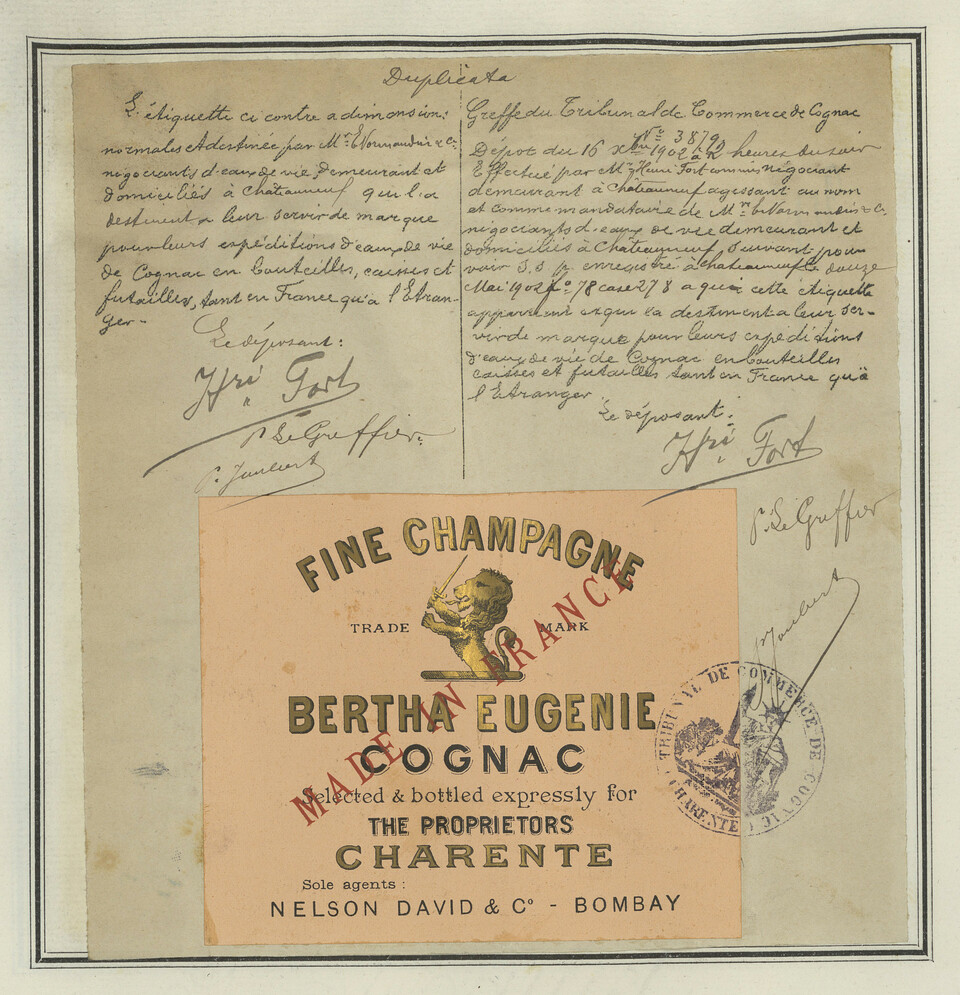 Duplicata
L'étiquette ci contre a dimensions
normales et destinée par Mrs E Normandin & Cie
négociants d'eaux de vie, demeurant et
domiciliés à Châteauneuf qui l'a
destinent à leur servir de marque
pour leurs expéditions d'eaux de vie
de Cognac en bouteilles, caisses et
futailles, tant en France qu'à l'Etran-
ger -
Le déposant :
Hri Fort
p. Le Greffier
P. Joubert
Greffe du Tribunal de Commerce de Cognac
No 3879
Dépot du 16 Xbre 1902 à heures du soir
Effectué par Mr Henri Fort commis négociant
demeurant à Châteauneuf agissant au nom
et comme mandataire de Mrs E Normandin & Cie
négociants d'eaux de vie demeurant et
domiciliés à Châteauneuf, suivant pou-
voir S.S.P. enregistré à Châteauneuf le douze
Mai 1902 fo 78 case 278 a que cette étiquette
appartient et qui la destinent a leur ser-
vir de marque pour leurs expéditions
d'eaux de vie de Cognac en bouteilles
caisses et futailles tant en France qu'à
l'Etranger
Le déposant :
Hri Fort
p. Le Greffier
Joubert
FINE CHAMPAGNE
TRADE MARK
MADE IN FRANCE
BERTHA EUGENIE
COGNAC
Selected & bottled expressly for
THE PROPRIETORS
CHARENTE
Sole agents :
NELSON DAVID & Co - BOMBAY
TRIBUNAL DE COMMERCE DE COGNAC
CHARENTE